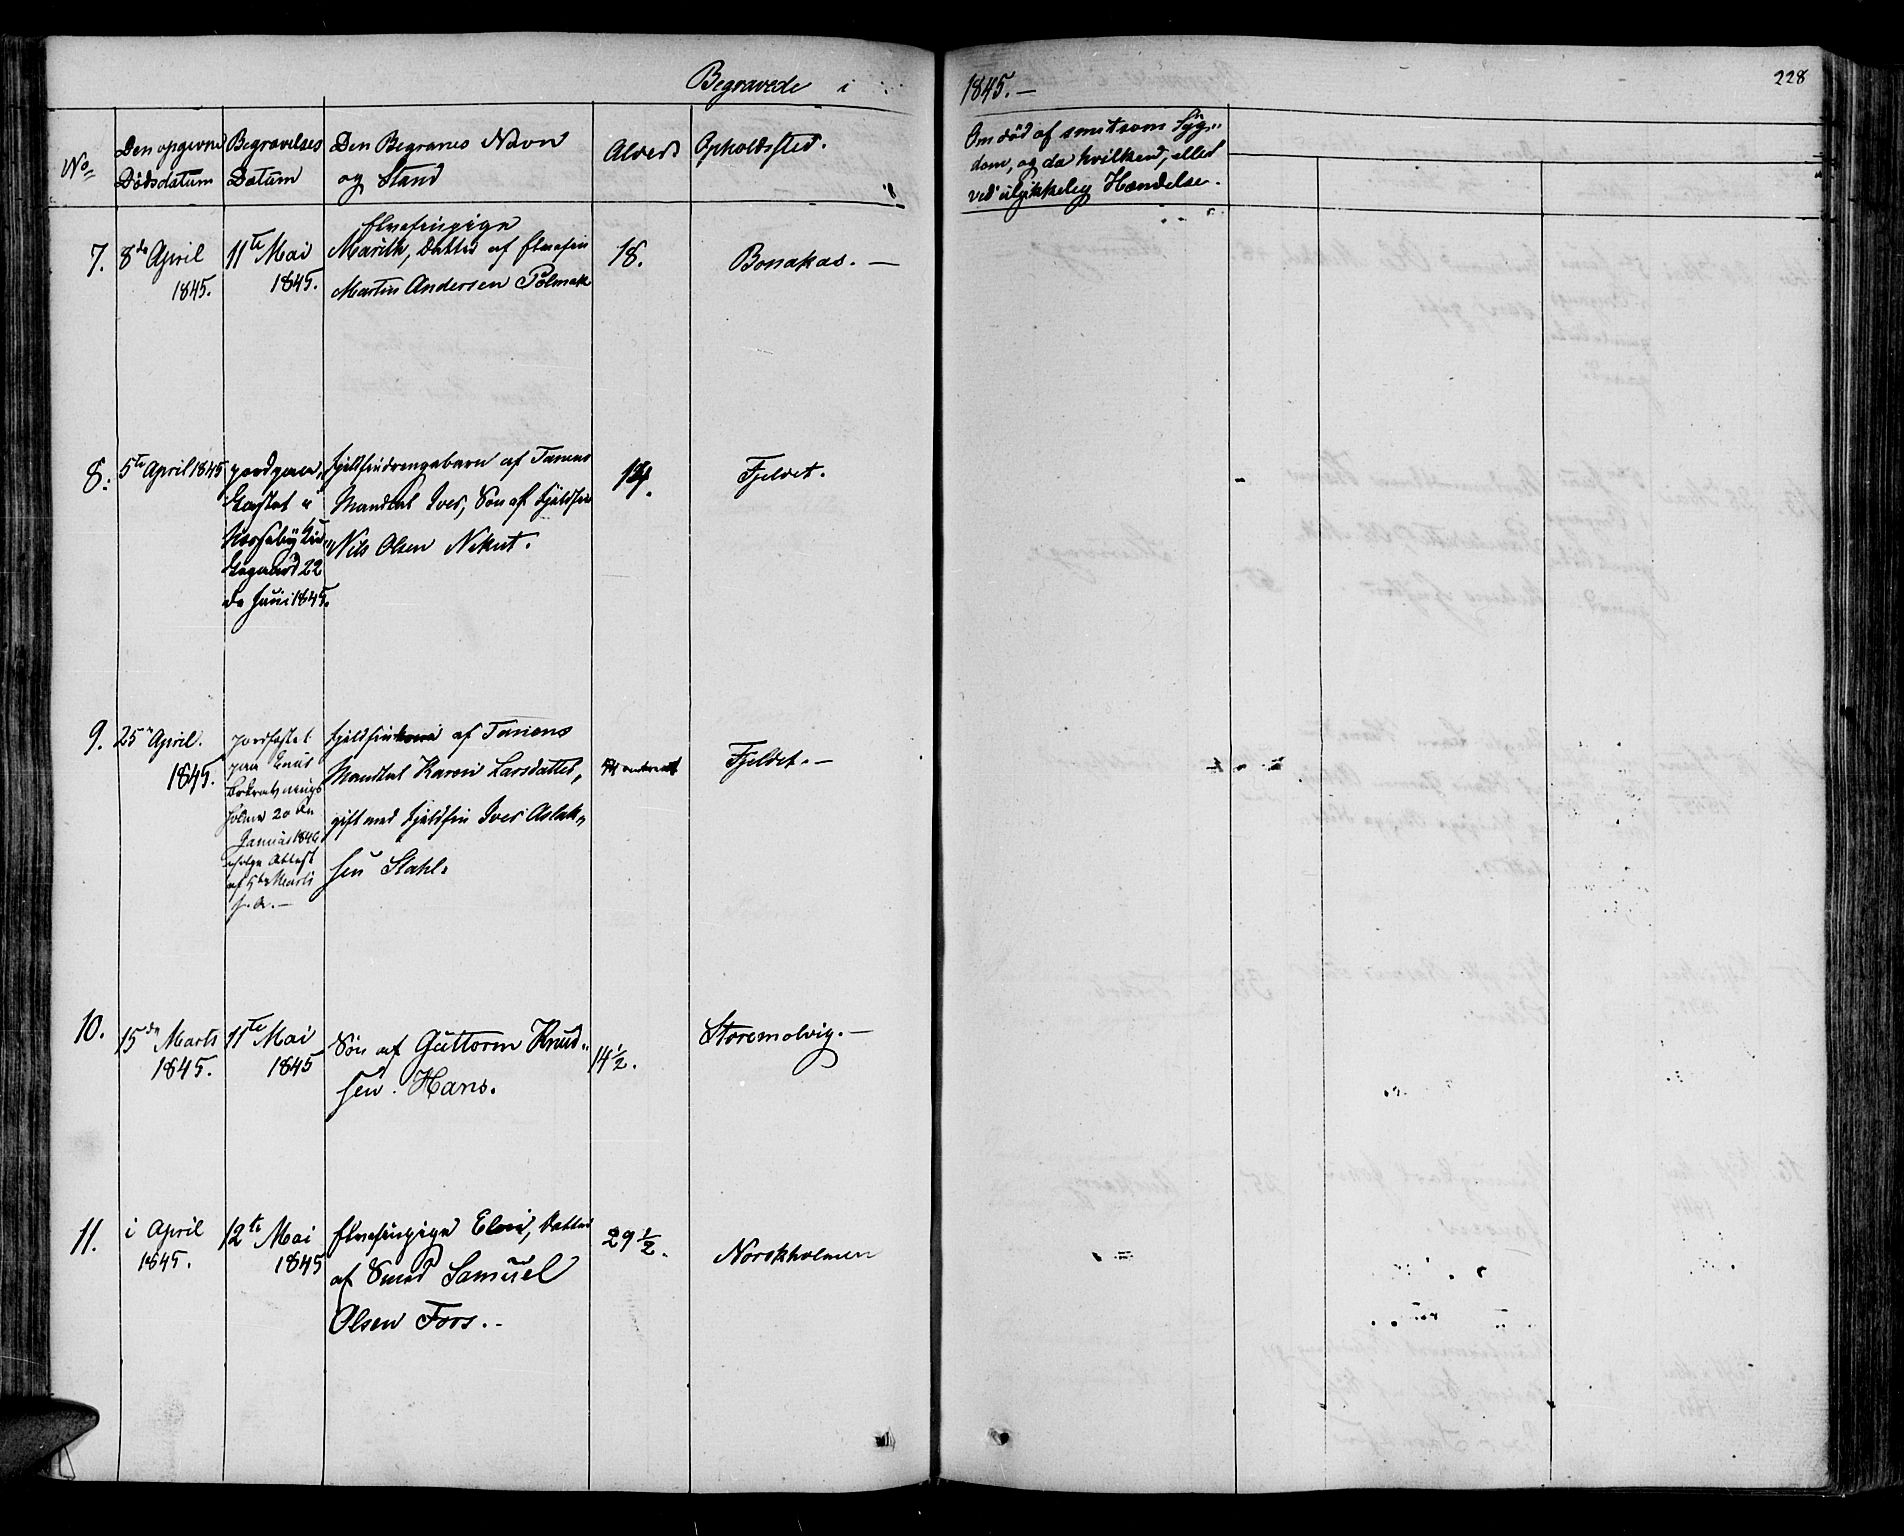 Begravede i
1845.—
228
No
Den opgivne
Dödsdatum
Begravelses
Datum
Den Begravnes Navn
og Stand
Alder
Opholdsted.
Om död af smitsom Syg-
dom, og da hvilken, eller
ved ulykkelig Hændelse.
7.
8de April
1845.
11te Mai
1845.
Elvefinpige
Marith, Datter af Elvefin
Martin Andersen Polmak
18.
Bonakas.—
8.
5te April 1845
22
de Juni 1845.
Fjeldfindrengebarn af Tanens
Mandtal Iver, Sön af Fjeldfin
Nils Olsen Nikut.
Fjeldet.
9.
25de April.
1845.
jordfæstet
20de
Januar 1846
ifølge Attest
af 5te Marts
s. A.—
Fjeldfinkone af Tanens
Mandtal Karen Larsdatter,
gift med Fjeldfin Iver Aslak-
sen Stahl.
Fjeldet.—
10.
15de Marts
1845.
11te Mai
1845
Sön af Guttorm Knud-
sen. Hans.
14½.
Storemolvig.—
11.
i April
1845.
12te Mai
1845
Elvefinpige Elen, Datter
af Smed Samuel
Olsen Fors.—
29½.
Norskholmen